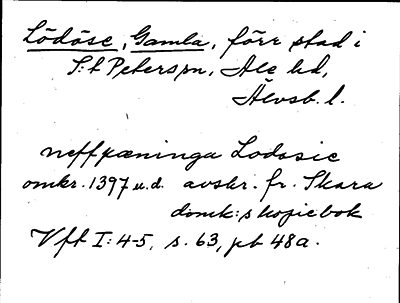 Lödöse, Gamla, förr stad i
S:t Peters sn, Ale hd,
Älvsb. l.
neffpæninga Lodosie
omkr. 1397 u.d. avskr. fr. Skara
domk:s kopiebok
Vft I: 4-5, s. 63, pt 48a.